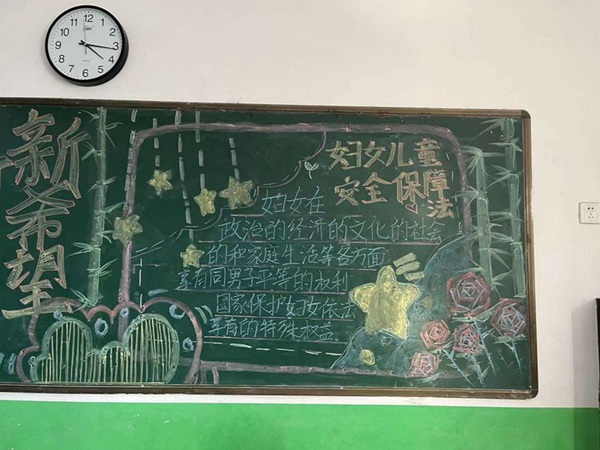 新希望
妇女儿童
安全保障
法
妇女在
政治的经济的文化的社会
的和家庭生活等各方面
享有同男子平等的权利
国家保护妇女依法
享有的特殊权益
12
1
2
3
4
5
6
7
8
9
10
11